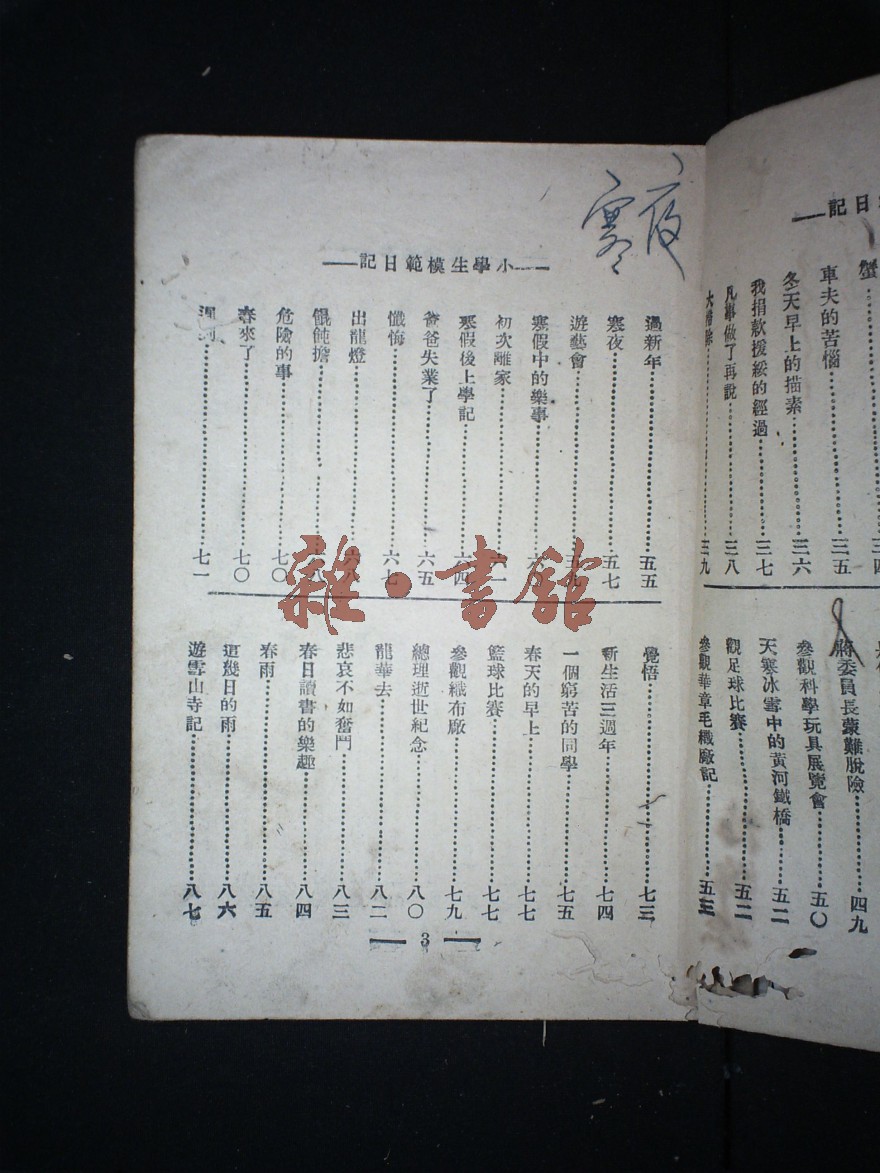 日記
蟹 三四
車夫的苦惱 三五
冬天早上的描素 三六
我捐款援綏的經過 三七
凡事做了再說 三八
大掃除 三九
蔣委員長蒙難脫險 四九
參觀科學玩具展覽會 五〇
天寒冰雪中的黃河鐵橋 五二
觀足球比賽 五二
參觀華章毛織廠記 五三
寒夜
小學生模範日記
過新年 五五
寒夜 五七
遊藝會
寒假中的樂事
初次離家
寒假後上學記 六四
爸爸失業了 六五
懺悔 六七
出龍燈 六八
餛飩擔
危險的事 七〇
春來了 七〇
遲到 七一
覺悟 七三
新生活三週年 七四
一個窮苦的同學 七五
春天的早上 七七
籃球比賽 七七
參觀織布廠 七九
總理逝世紀念 八〇
龍華去 八二
悲哀不如奮鬥 八三
春日讀書的樂趣 八四
春雨 八五
這幾日的雨 八六
遊雪山寺記 八七
3
雜·書館